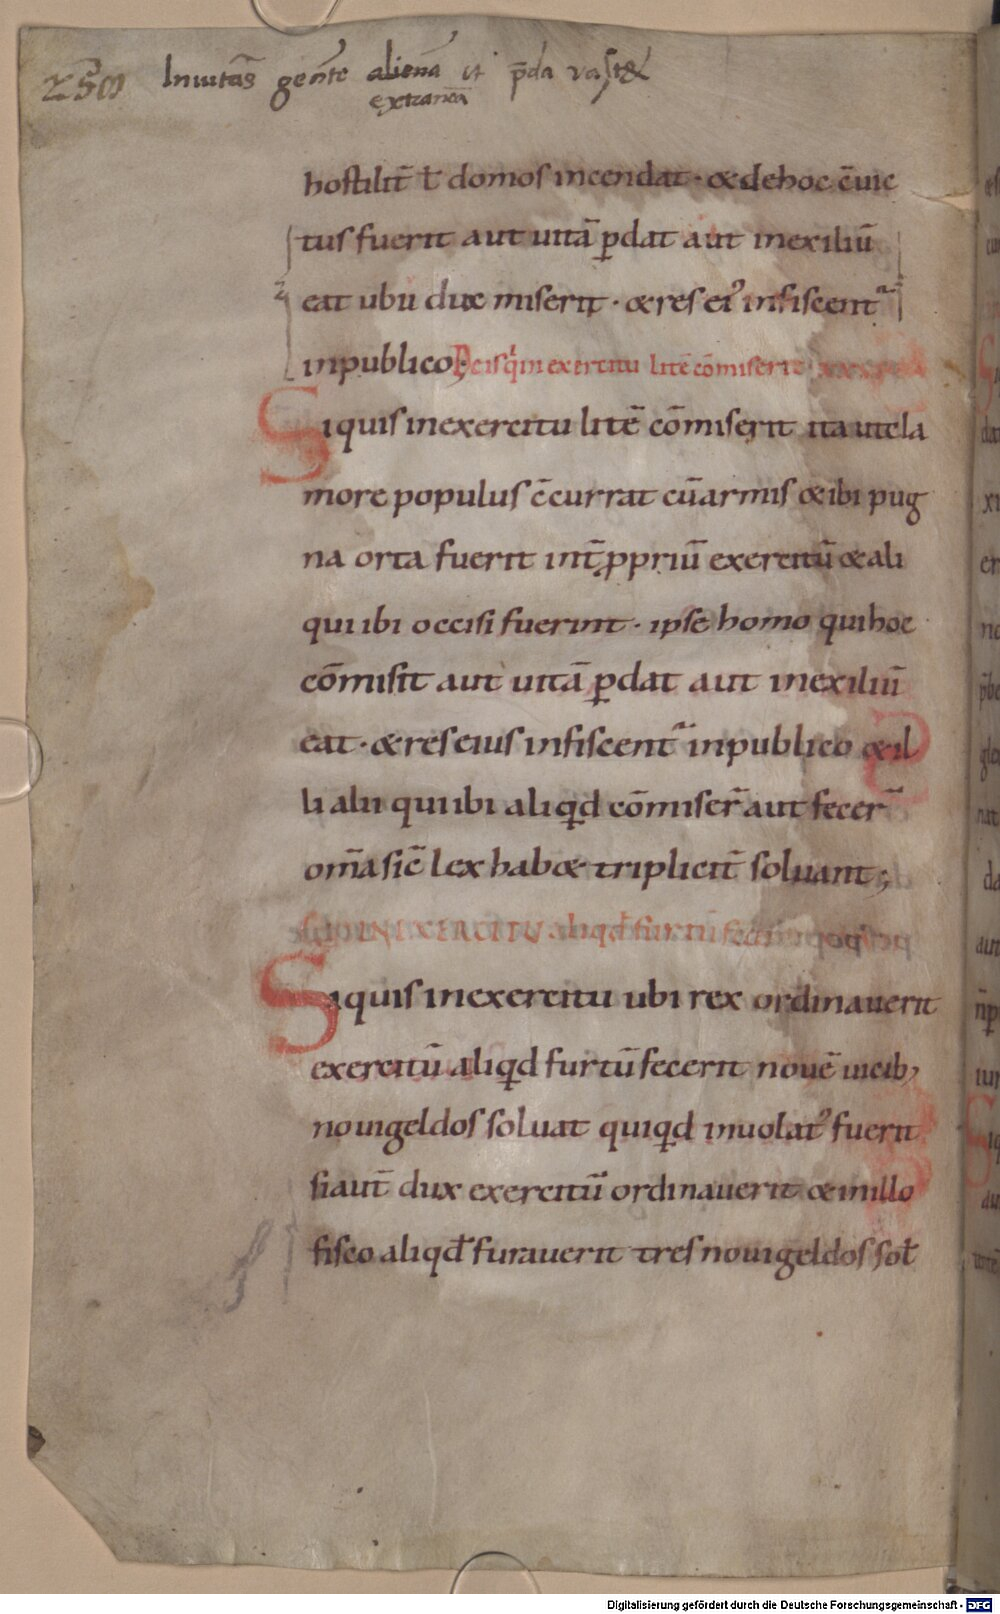 Inuitās gentē alienā ut p̄da vast&
extraneā
hostilit̄ ł domos incendat · & dehoc c̄uic
tus fuerit aut uitā ꝑdat aut inexiliū
eat ubu dux miserit · & res ei᾽ infiscent᷑
inpublico; De is q̇ in exercitu litē cōmiserit
Siquis inexercitu litē cōmiserit ita ut cla
more populus c̄currat cū armis & ibi pug
na orta fuerit int̄ ꝓpriū exercitū & ali
qui ibi occisi fuerint · ipse homo qui hoc
cōmisit aut uitā ꝑdat aut inexiliū
eat · & res eius infiscent᷑ inpublico & il
li alii qui ibi aliqd cōmiser̄ aut fecer̄
om̄a sic̄ lex hab& triplicit̄ soluant;
INEXERCITU aliqd furtū fecerit
Siquis inexercitu ubi rex ordinauerit
exercitū aliqd furtū fecerit nouē uicib;
nouigeldos soluat quiqd inuolat᾽ fuerit
si aut̄ dux exercitū ordinauerit & in illo
fisco aliqd furauerit tres nouigeldos soł
Digitalisierung gefördert durch die Deutsche Forschungsgemeinschaft - DFG